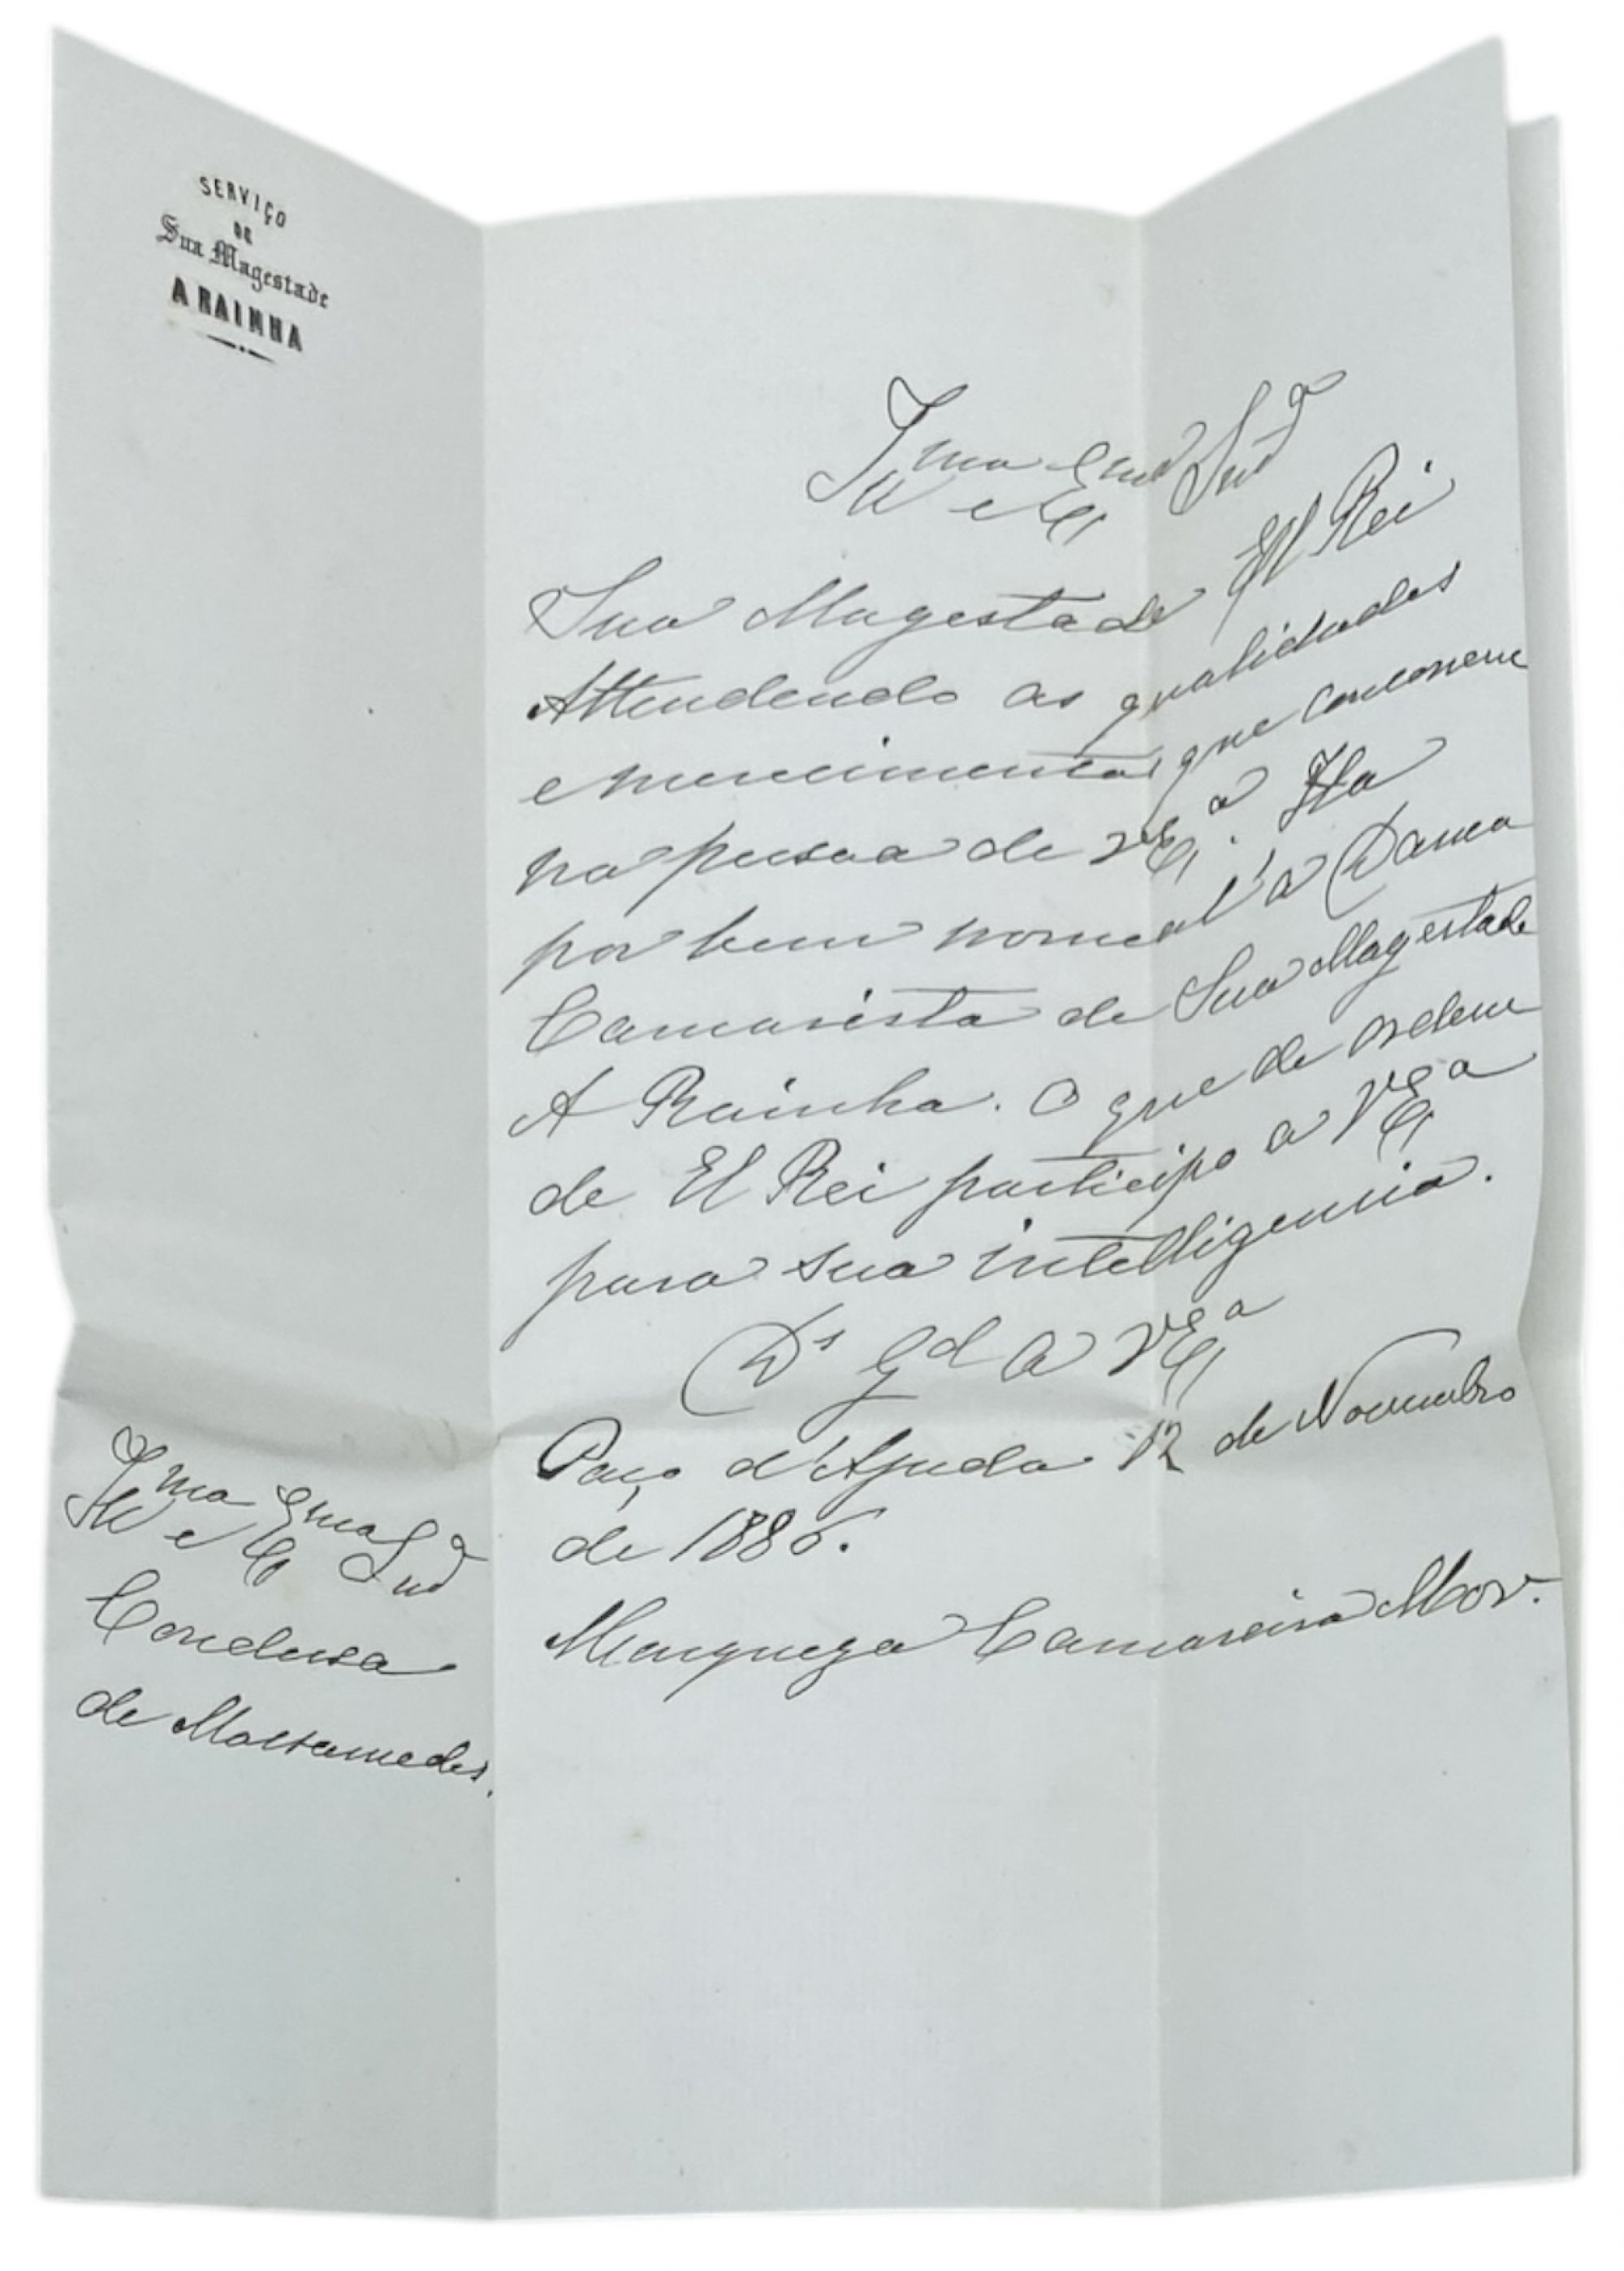 SERVIÇO
DE
Sua Magestade
A RAINHA
Illma e Exma Snra
Sua Magestade El Rei
Attendendo as qualidades
e merecimentos que concorrem
na pessoa de V Exa. Ha
por bem nomeal'a Dama
Camarista de Sua Magestade
A Rainha. O que de ordem
de El Rei participo a V Exa
para sua intelligencia.
Ds Gd a V Exa
Paço d'Ajuda 12 de Novembro
de 1886.
Marqueza Camareira Mor.
Illma e Exma Snra
Condessa
de Mossamedes.